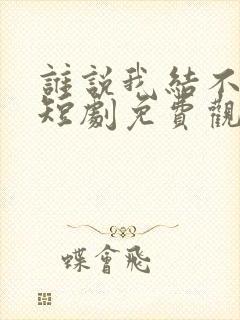 誰說我結不
短劇免費觀
蝶會飛